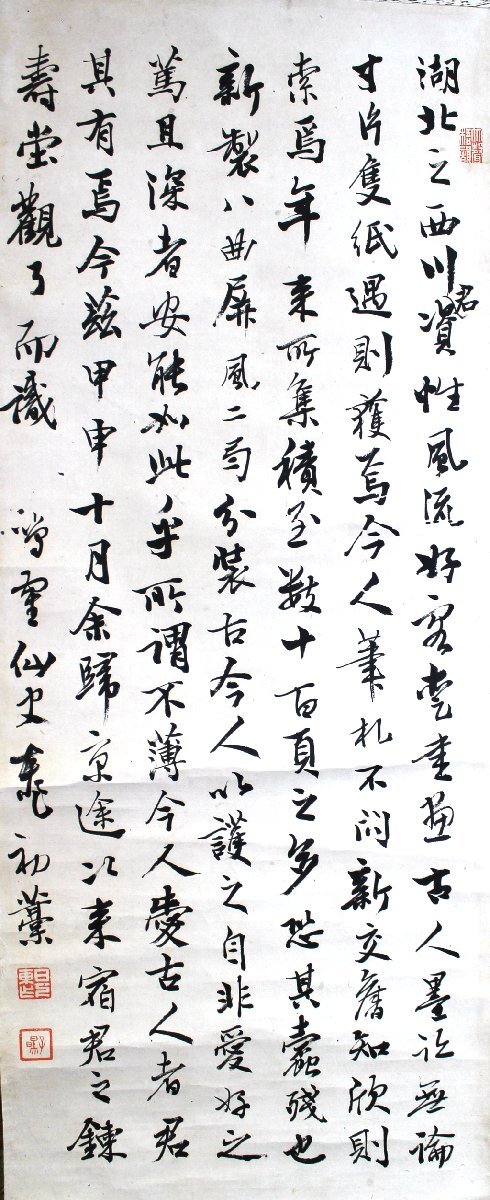 湖北之西川君資性風流好客愛書画古人墨迹無論
寸片隻紙遇則獲焉今人筆札不問新交旧知欣則
索焉年来所集積至数十百頁之多恐其蠹残也
新製八曲屏風二局分装古今人以護之自非愛好之
篤且深者安能如此乎所謂不薄今人愛古人者君
具有焉今茲甲申十月余歸京途次来宿君之錬
壽堂觀了而識 鳴霍仙史 初藁